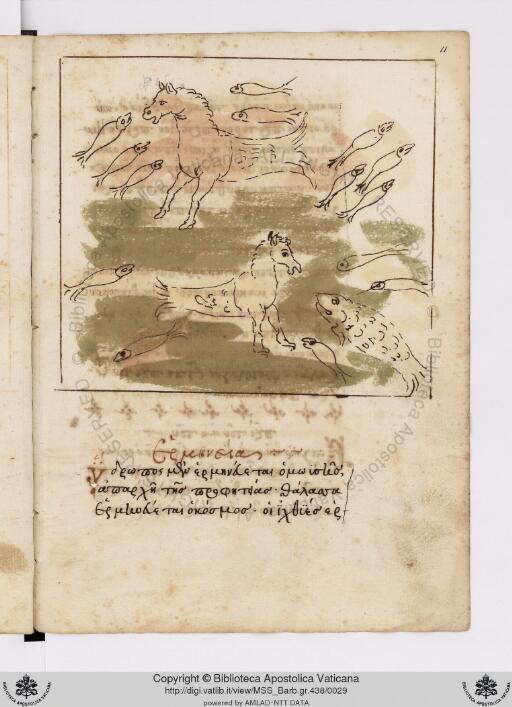 11
Ερμηνεία
ὑδρωπος μὲν ἑρμηνεύεται ὁμωϊσῆς,
ἀπαρχὴ τῆς προφητείας. θάλασσα
Ἑρμηνεύεται ὁκόσμος. οἱ ἰχθύες ἑρ
Copyright © Biblioteca Apostolica Vaticana
http://digi.vatlib.it/view/MSS_Barb.gr.438/0029
powered by AMLAD-NTT DATA